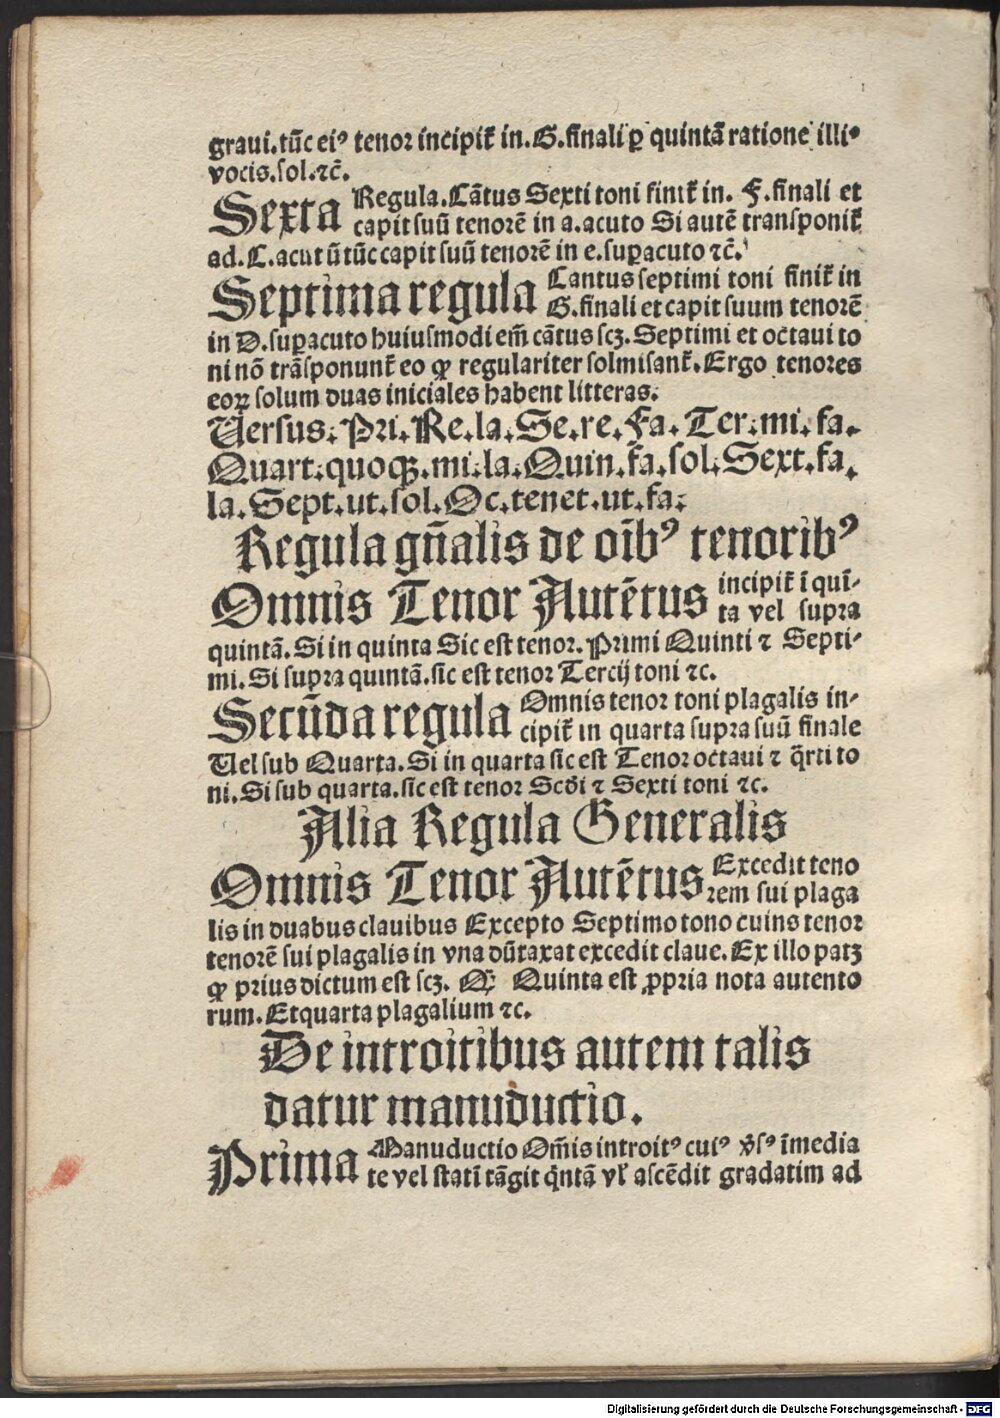 graui.tūc eiꝰ tenor incipit̄ in.G.finali ꝑ quintā ratione illiꝰ
vocis.sol.⁊c̄.
Sexta Regula.Cātus Sexti toni finit̄ in. F.finali et
capit suū tenorē in a.acuto Si autē transponit̄
ad.C.acut ū tūc capit suū tenorē in e.suꝑacuto ⁊c̄.
Septima regula Cantus septimi toni finit̄ in
G.finali et capit suum tenorē
in D.suꝑacuto huiusmodi em̄ cātus scꝫ.Septimi et octaui to
ni nō trāsponunt̄ eo ꝙ regulariter solmisant̄.Ergo tenores
eoꝝ solum duas iniciales habent litteras.
Versus.Pri.Re.la.Se.re.Fa.Ter.mi.fa.
Quart.quoqꝫ.mi.la.Quin.fa.sol.Sext.fa.
la.Sept.ut.sol.Oc.tenet.ut.fa.
Regula gn̄alis de oīb⁹ tenorib⁹
Omnis Tenor Autētus incipit̄ ī quī-
ta vel supra
quintā.Si in quinta Sic est tenor.Primi Quinti ⁊ Septi-
mi.Si supra quintā.sic est tenor Tercij toni ⁊c.
Secūda regula Omnis tenor toni plagalis in-
cipit̄ in quarta supra suū finale
Vel sub Quarta.Si in quarta sic est Tenor octaui ⁊ q̄rti to
ni.Si sub quarta.sic est tenor Scd̄i ⁊ Sexti toni ⁊c.
Alia Regula Generalis
Omnis Tenor Autētus Excedit teno
rem sui plaga
lis in duabus clauibus Excepto Septimo tono cuius tenor
tenorē sui plagalis in vna dūtaxat excedit claue.Ex illo patꝫ
ꝙ prius dictum est scꝫ. Q; Quinta est ꝓpria nota autento
rum.Etquarta plagalium ⁊c.
De introitibus autem talis
datur manuductio.
Prima Manuductio Om̄is introit⁹ cui⁹ v̄s⁹ īmedia
te vel statī tāgit q̄ntā vl̄ ascēdit gradatim ad
Digitalisierung gefördert durch die Deutsche Forschungsgemeinschaft - DFG